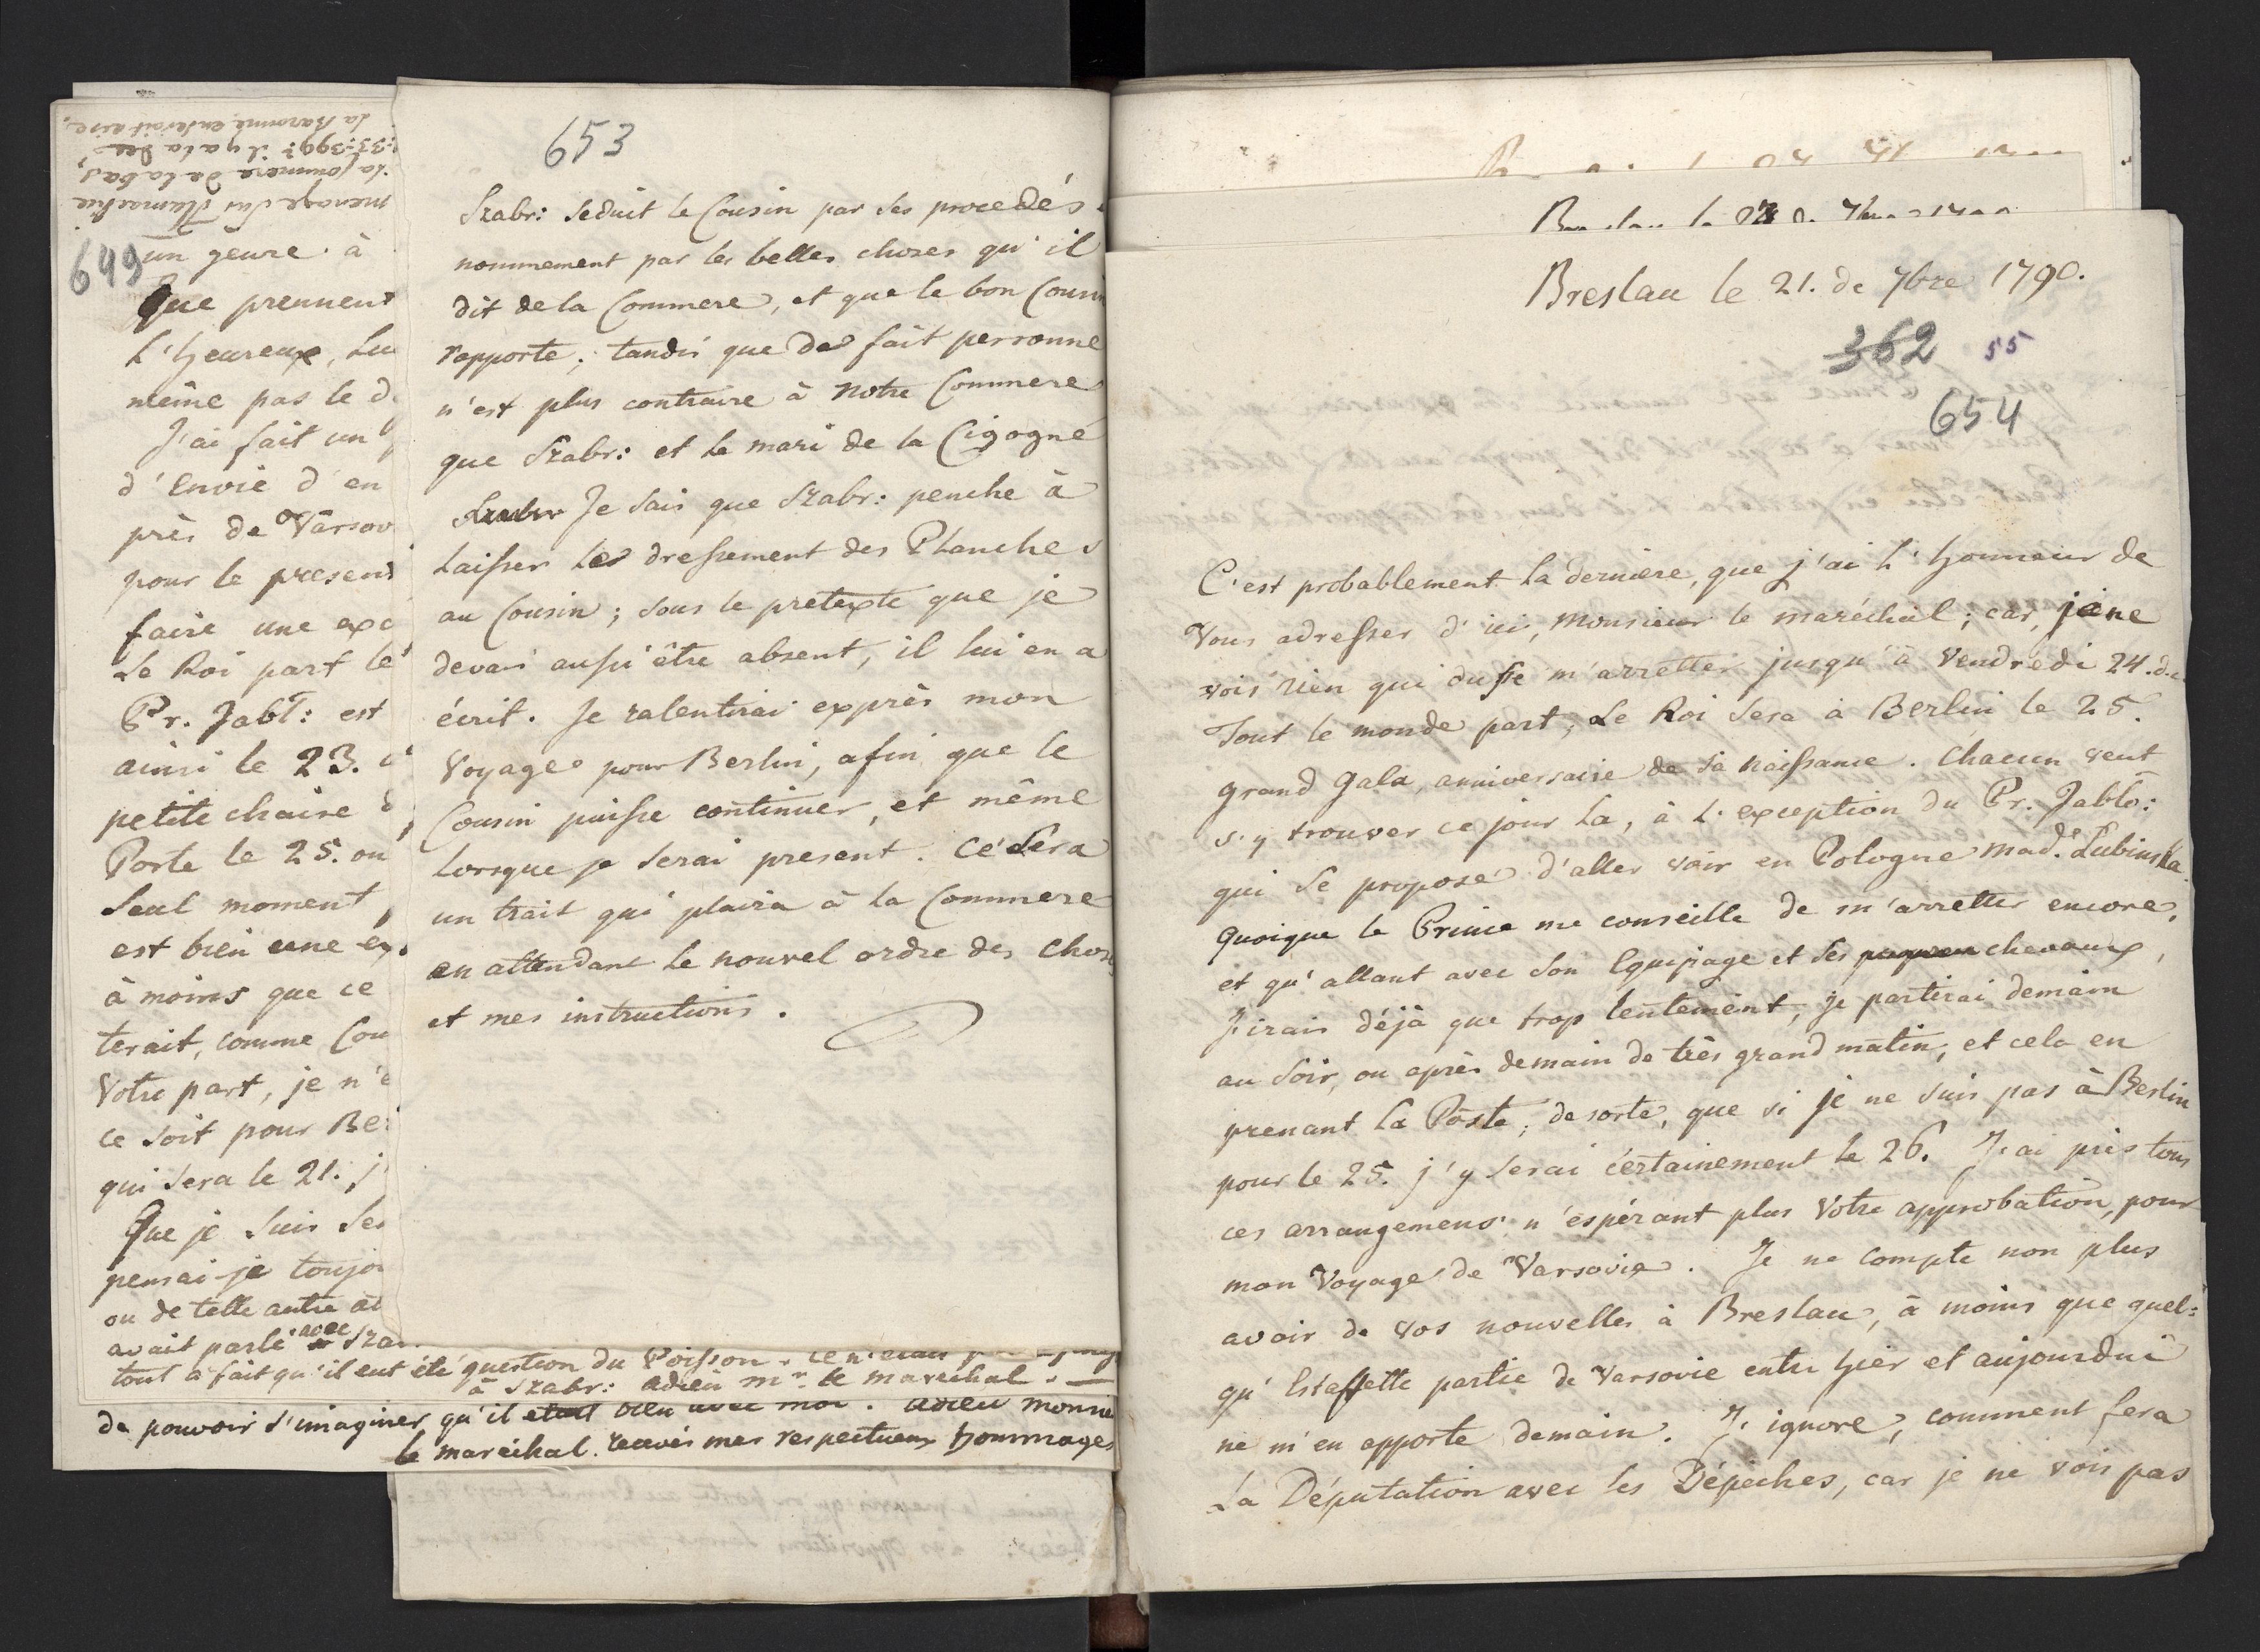 649
un genre à
Que prennent
L'heureux, Lui
même pas le d
J'ai fait un
d'Envie d'en
près de Varsov
pour le present
faire une exc
Le Roi part le
Pr. Jabł: est
ainsi le 23.
petite chaise d
Porte le 25. ou
Seul moment,
est bien une ex
à moins que ce
terait, comme Cou
Votre part, je n'e
ce soit pour Be
qui sera le 21. j
Que je suis Se
pensai-je toujo
ou de telle autre
avait parlé avec Sza
tout à fait qu'il eut été question du Poisson.
à Szabr: adieu Mr. le marechal. —
de pouvoir s'imaginer qu'il etait bien avec moi. adieu monsie
le maréchal. recevés mes respectueux hommages
653
Szabr: Seduit le Cousin par ses procedés
nommement par les belles choses qu'il
dit de la Commere, et que le bon Cousin
rapporte; tandis que de fait personne
n'est plus contraire à notre Commere
que Szabr: et le mari de la Cigogne
Je sais que Szabr: penche à
Laisser le dressement des Planches
au Cousin; sous le pretexte que je
devais aussi être absent, il lui en a
écrit. Je ralentirai exprès mon
Voyage pour Berlin, afin que le
Cousin puisse continuer, et même
lorsque je serai present. Ce sera
un trait qui plaira à la Commere
en attendant le nouvel ordre des chos
et mes instructions.
Breslau le 21. de 7bre 1790.
362 55
654
C'est probablement la derniere, que j'ai l'honneur de
Vous adresser d'ici, Monsieur le maréchal; car, je ne
vois rien qui dusse m'arretter jusqu'à Vendredi 24. d.c.
Tout le monde part, Le Roi sera à Berlin le 25.
grand Gala, anniversaire de sa naissance. Chacun veut
s'y trouver ce jour la, à l'exception du Pr: Jabło:
qui se propose d'aller voir en Pologne Made. Łubinska.
Quoique le Prince me conseille de m'arretter encore,
et qu'allant avec son Equipage et ses chevaux,
J'irais déjà que trop lentement, je partirai demain
au soir, ou après demain de très grand matin, et cela en
prenant la Poste; de sorte, que si je ne suis pas à Berlin
pour le 25. j'y serai certainement le 26. J'ai pris tous
ces arrangemens n'espérant plus Votre approbation, pour
mon Voyage de Varsovie. Je ne compte non plus
avoir de vos nouvelles à Breslau, à moins que quel:
qu'Estaffette partie de Varsovie entre hier et aujourdui
ne m'en apporte demain. J'ignore, comment fera
La Députation avec les Dépêches, car je ne vois pas